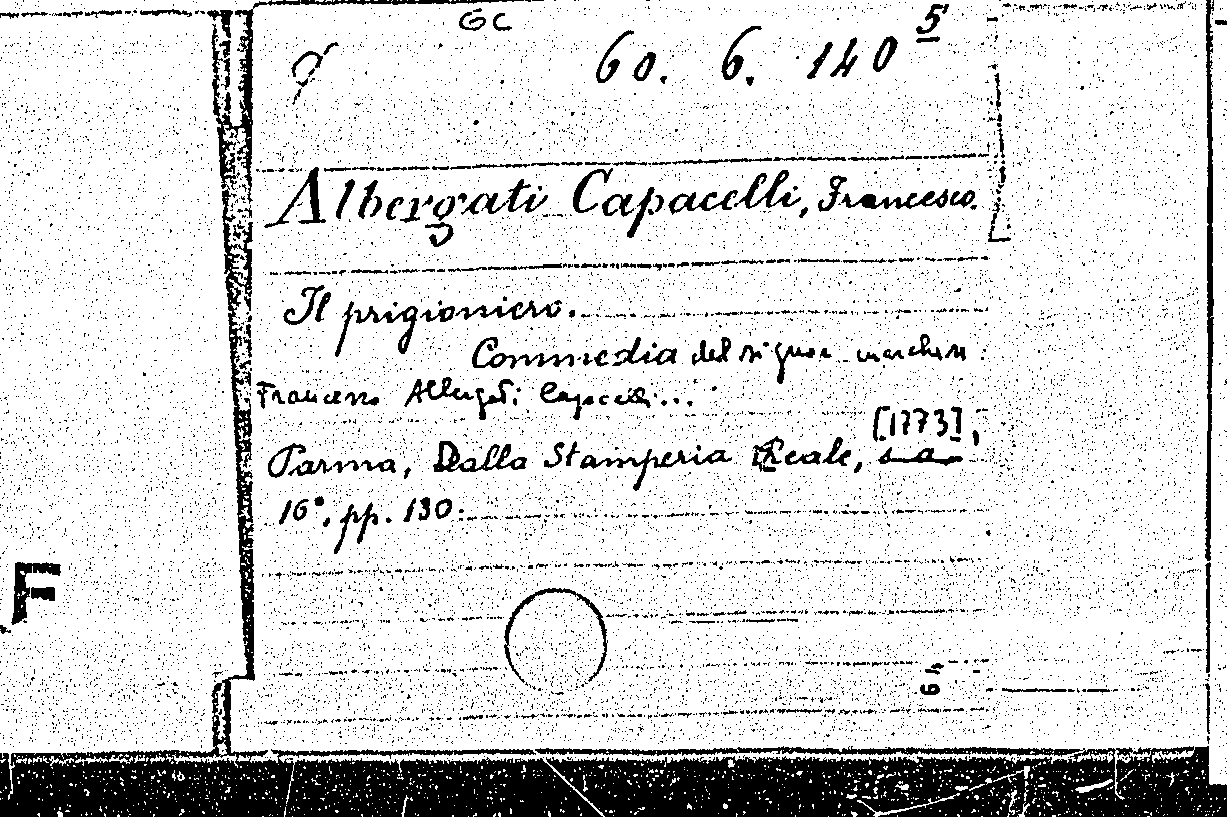 GC
60. 6. 140 5
Albergati Capacelli, Francesco.
Il prigioniero.
Commedia del signor marchese
Francesco Albergati Capacelli...
[1773],
Parma, Dalla Stamperia Reale, s. a.
16°. pp. 130.
F